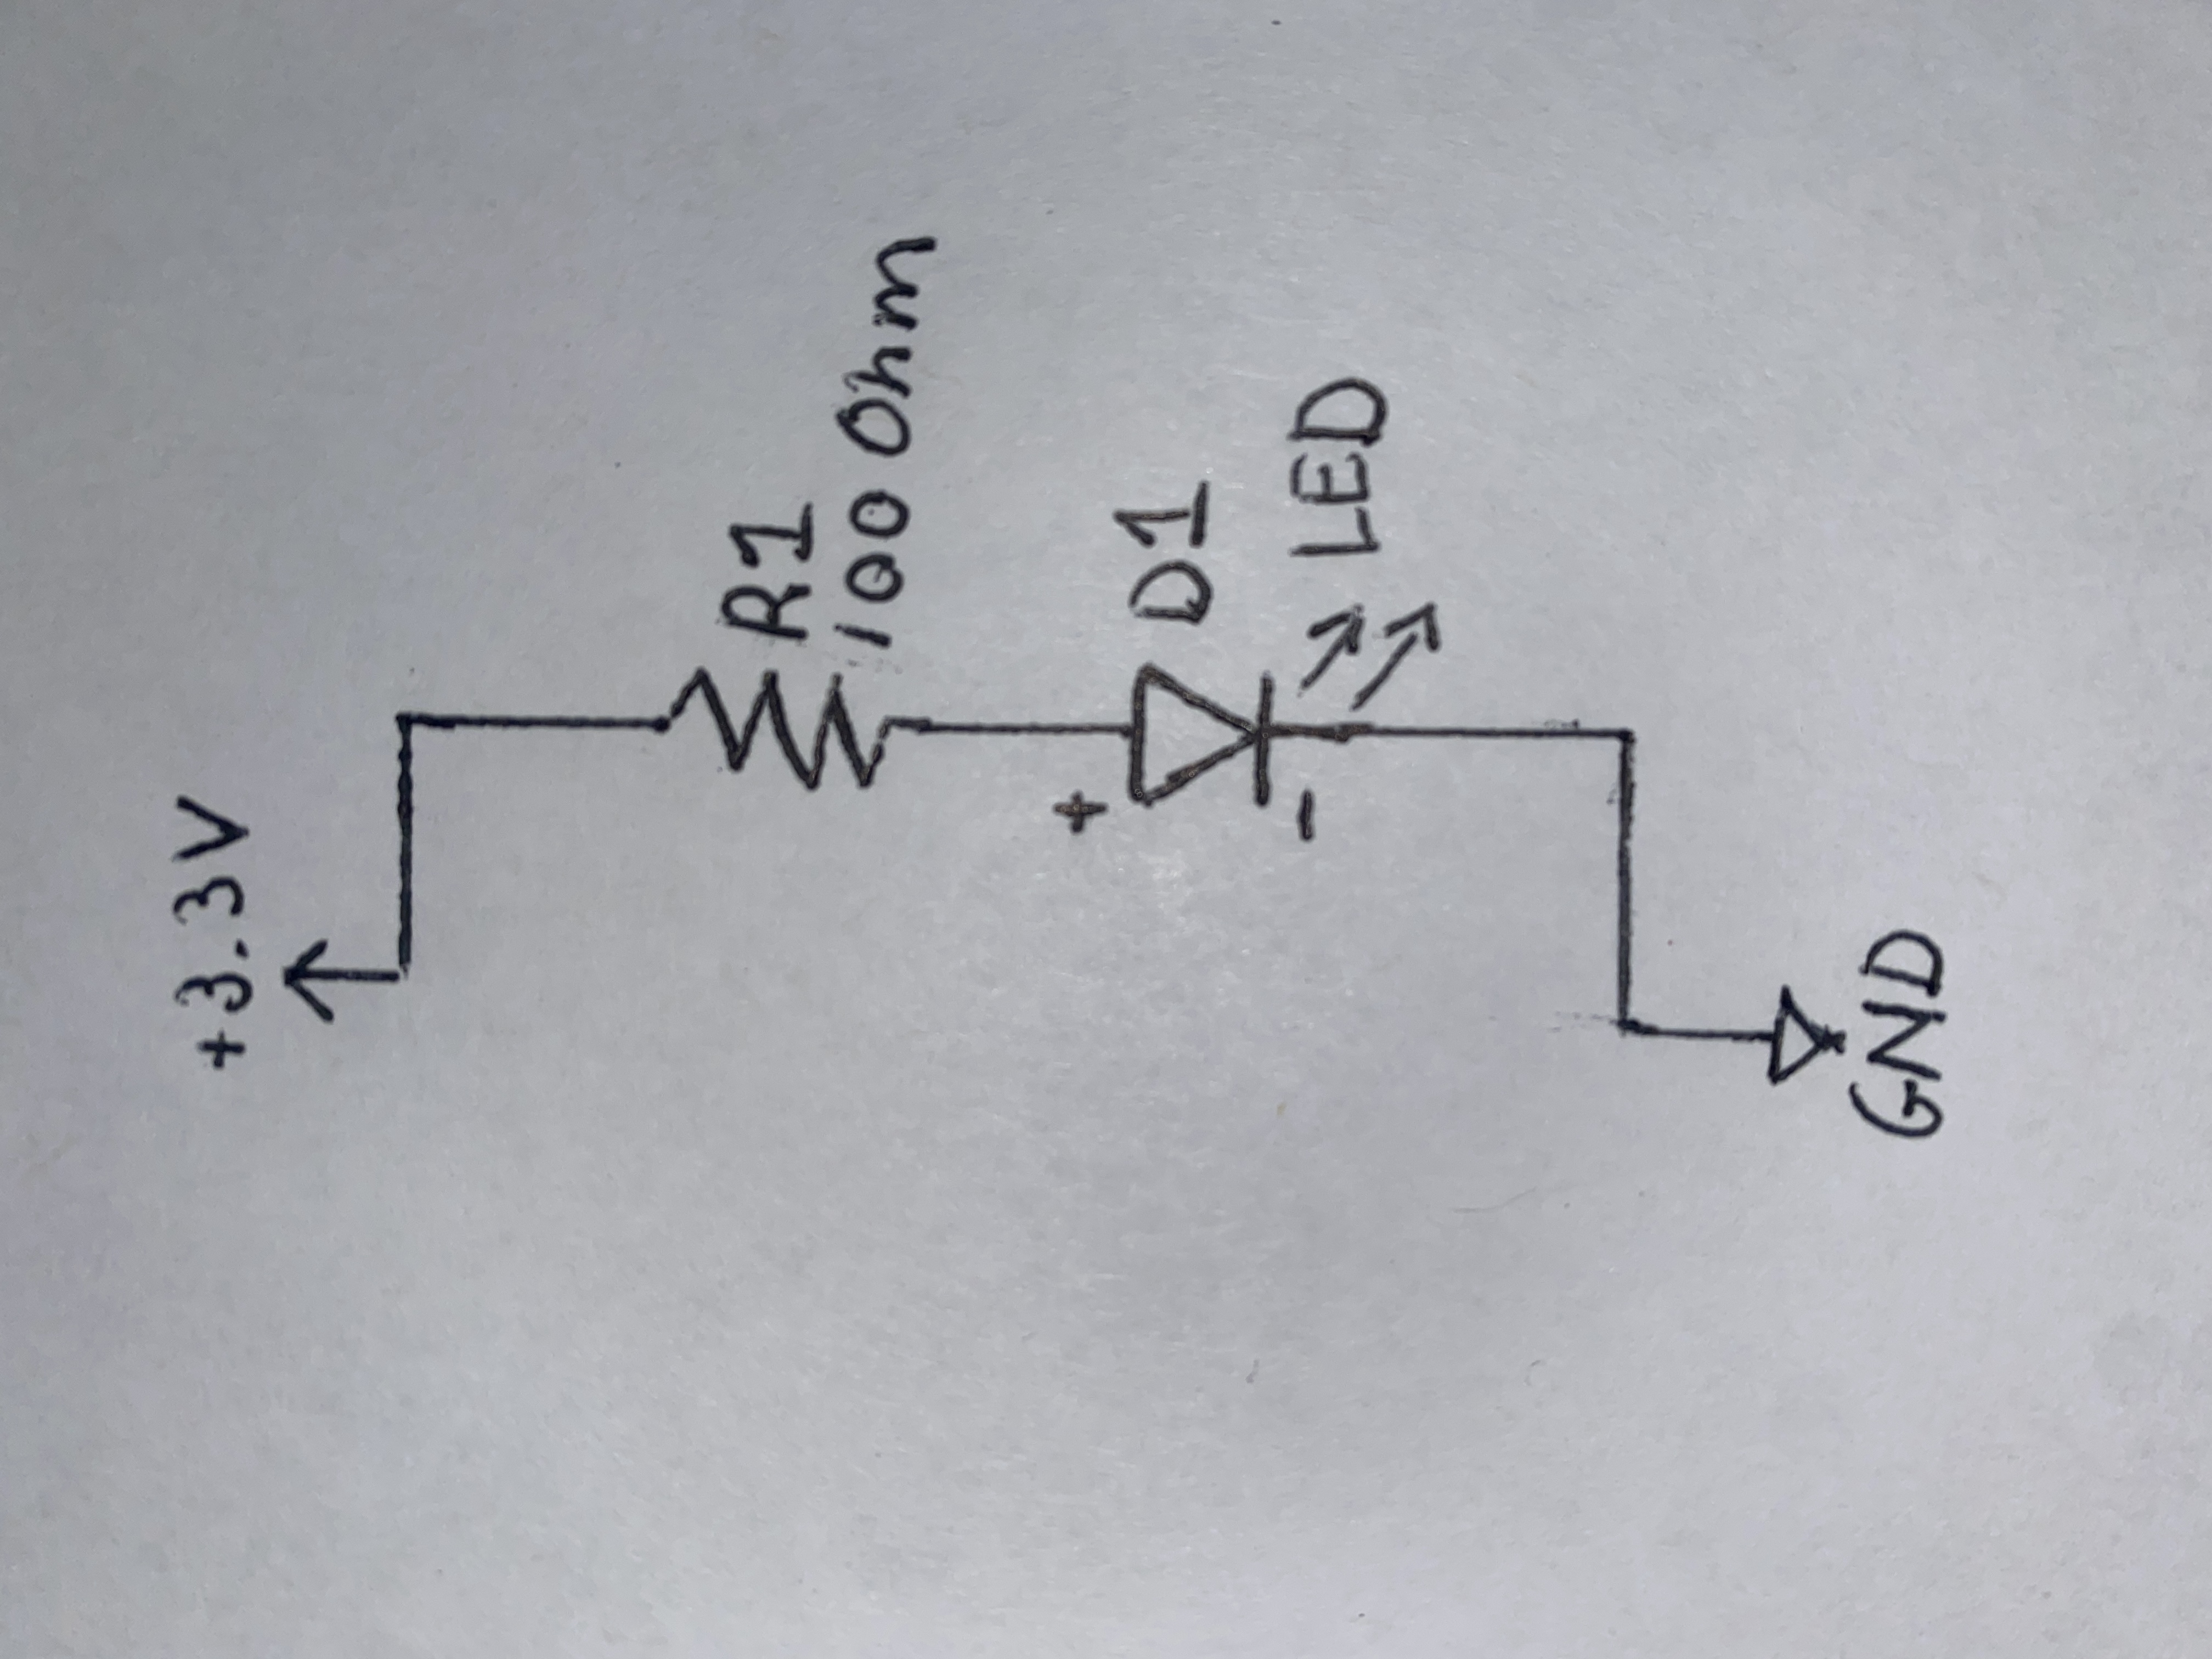 +3.3V
R1
100 Ohm
+
D1
-
LED
GND